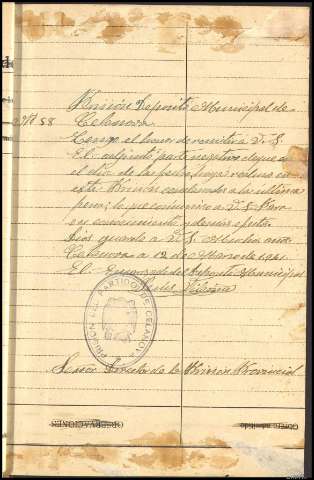 Nº 58
Prisión Deposito Municipal de
Celanova
Tengo el honor de remitir a V. S.
El adjunto parte negativo de que en
el día de la fecha haya reclusos en
esta Prisión condenados a la última
pena; lo que comunico a V. S. Para
su conocimiento y demas efectos.
Dios guarde a V. S. Muchos años
Celanova a 12 de Marzo de 1941.
El Encargado del Deposito Municipal
PRISION DEL PARTIDO DE CELANOVA
Señor Director de la Prision Provincial
OBSERVACIONES